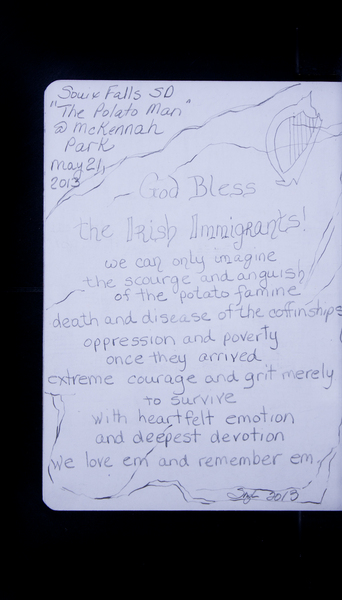 Souix Falls SD
"The Potato Man"
@ McKennah
Park
May 21,
2013
God Bless
the Irish Immigrants!
we can only imagine
the scourge and anguish
of the potato famine
death and disease of the coffinships
oppression and poverty
once they arrived
extreme courage and grit merely
to survive
with heartfelt emotion
and deepest devotion
We love em and remember em
2013